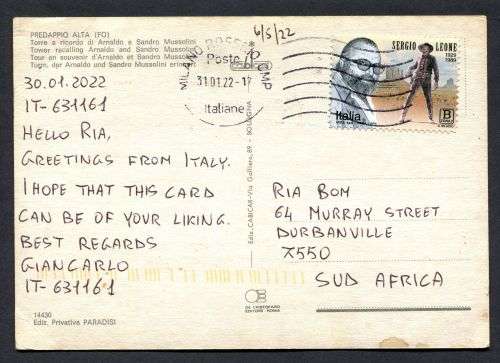 PREDAPPIO ALTA (FO)
Torre a ricordo di Arnaldo e Sandro Mussolini
Tower recalling Arnaldo and Sandro Mussolini
Tour en souvenir d'Arnaldo et Sandro Mussolini
Tugn. der Arnaldo und Sandro Mussolini
30.01.2022
IT-631161
HELLO RIA,
GREETINGS FROM ITALY.
I HOPE THAT THIS CARD
CAN BE OF YOUR LIKING.
BEST REGARDS
GIANCARLO
IT-631161
14430
Ediz. Privativa PARADISI
MILANO
Poste
31.01.22-17
CMP
Italiane
6/5/22
SERGIO LEONE
1929
1989
Italia
B
Ediz. CABICAR-Via Galliera, 89 - BOLOGNA
DE CRISTOFARO
EDITORE ROMA
RIA BOM
64 MURRAY STREET
DURBANVILLE
7550
SUD AFRICA